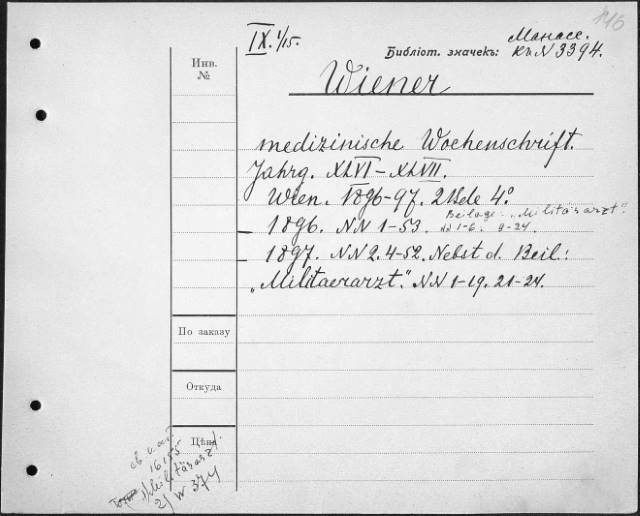 146
IX. 1/15.
Манасс.
Инв.
№
Библiот. значекъ: Къ N 3394.
Wiener
medizinische Wochenschrift.
Jahrg. XLVI–XLVII.
Wien. 1896–97. 2 Bde 4°
Beilage: „Militärarzt".
1896. NN 1–53. NN 1–6. 8–24.
1897. NN 2. 4–52. Nebst d. Beil:
„Militaerarzt." NN 1–19. 21–24.
По заказу
Откуда
Цѣна
16155
1) Militärarzt.
2) W 374